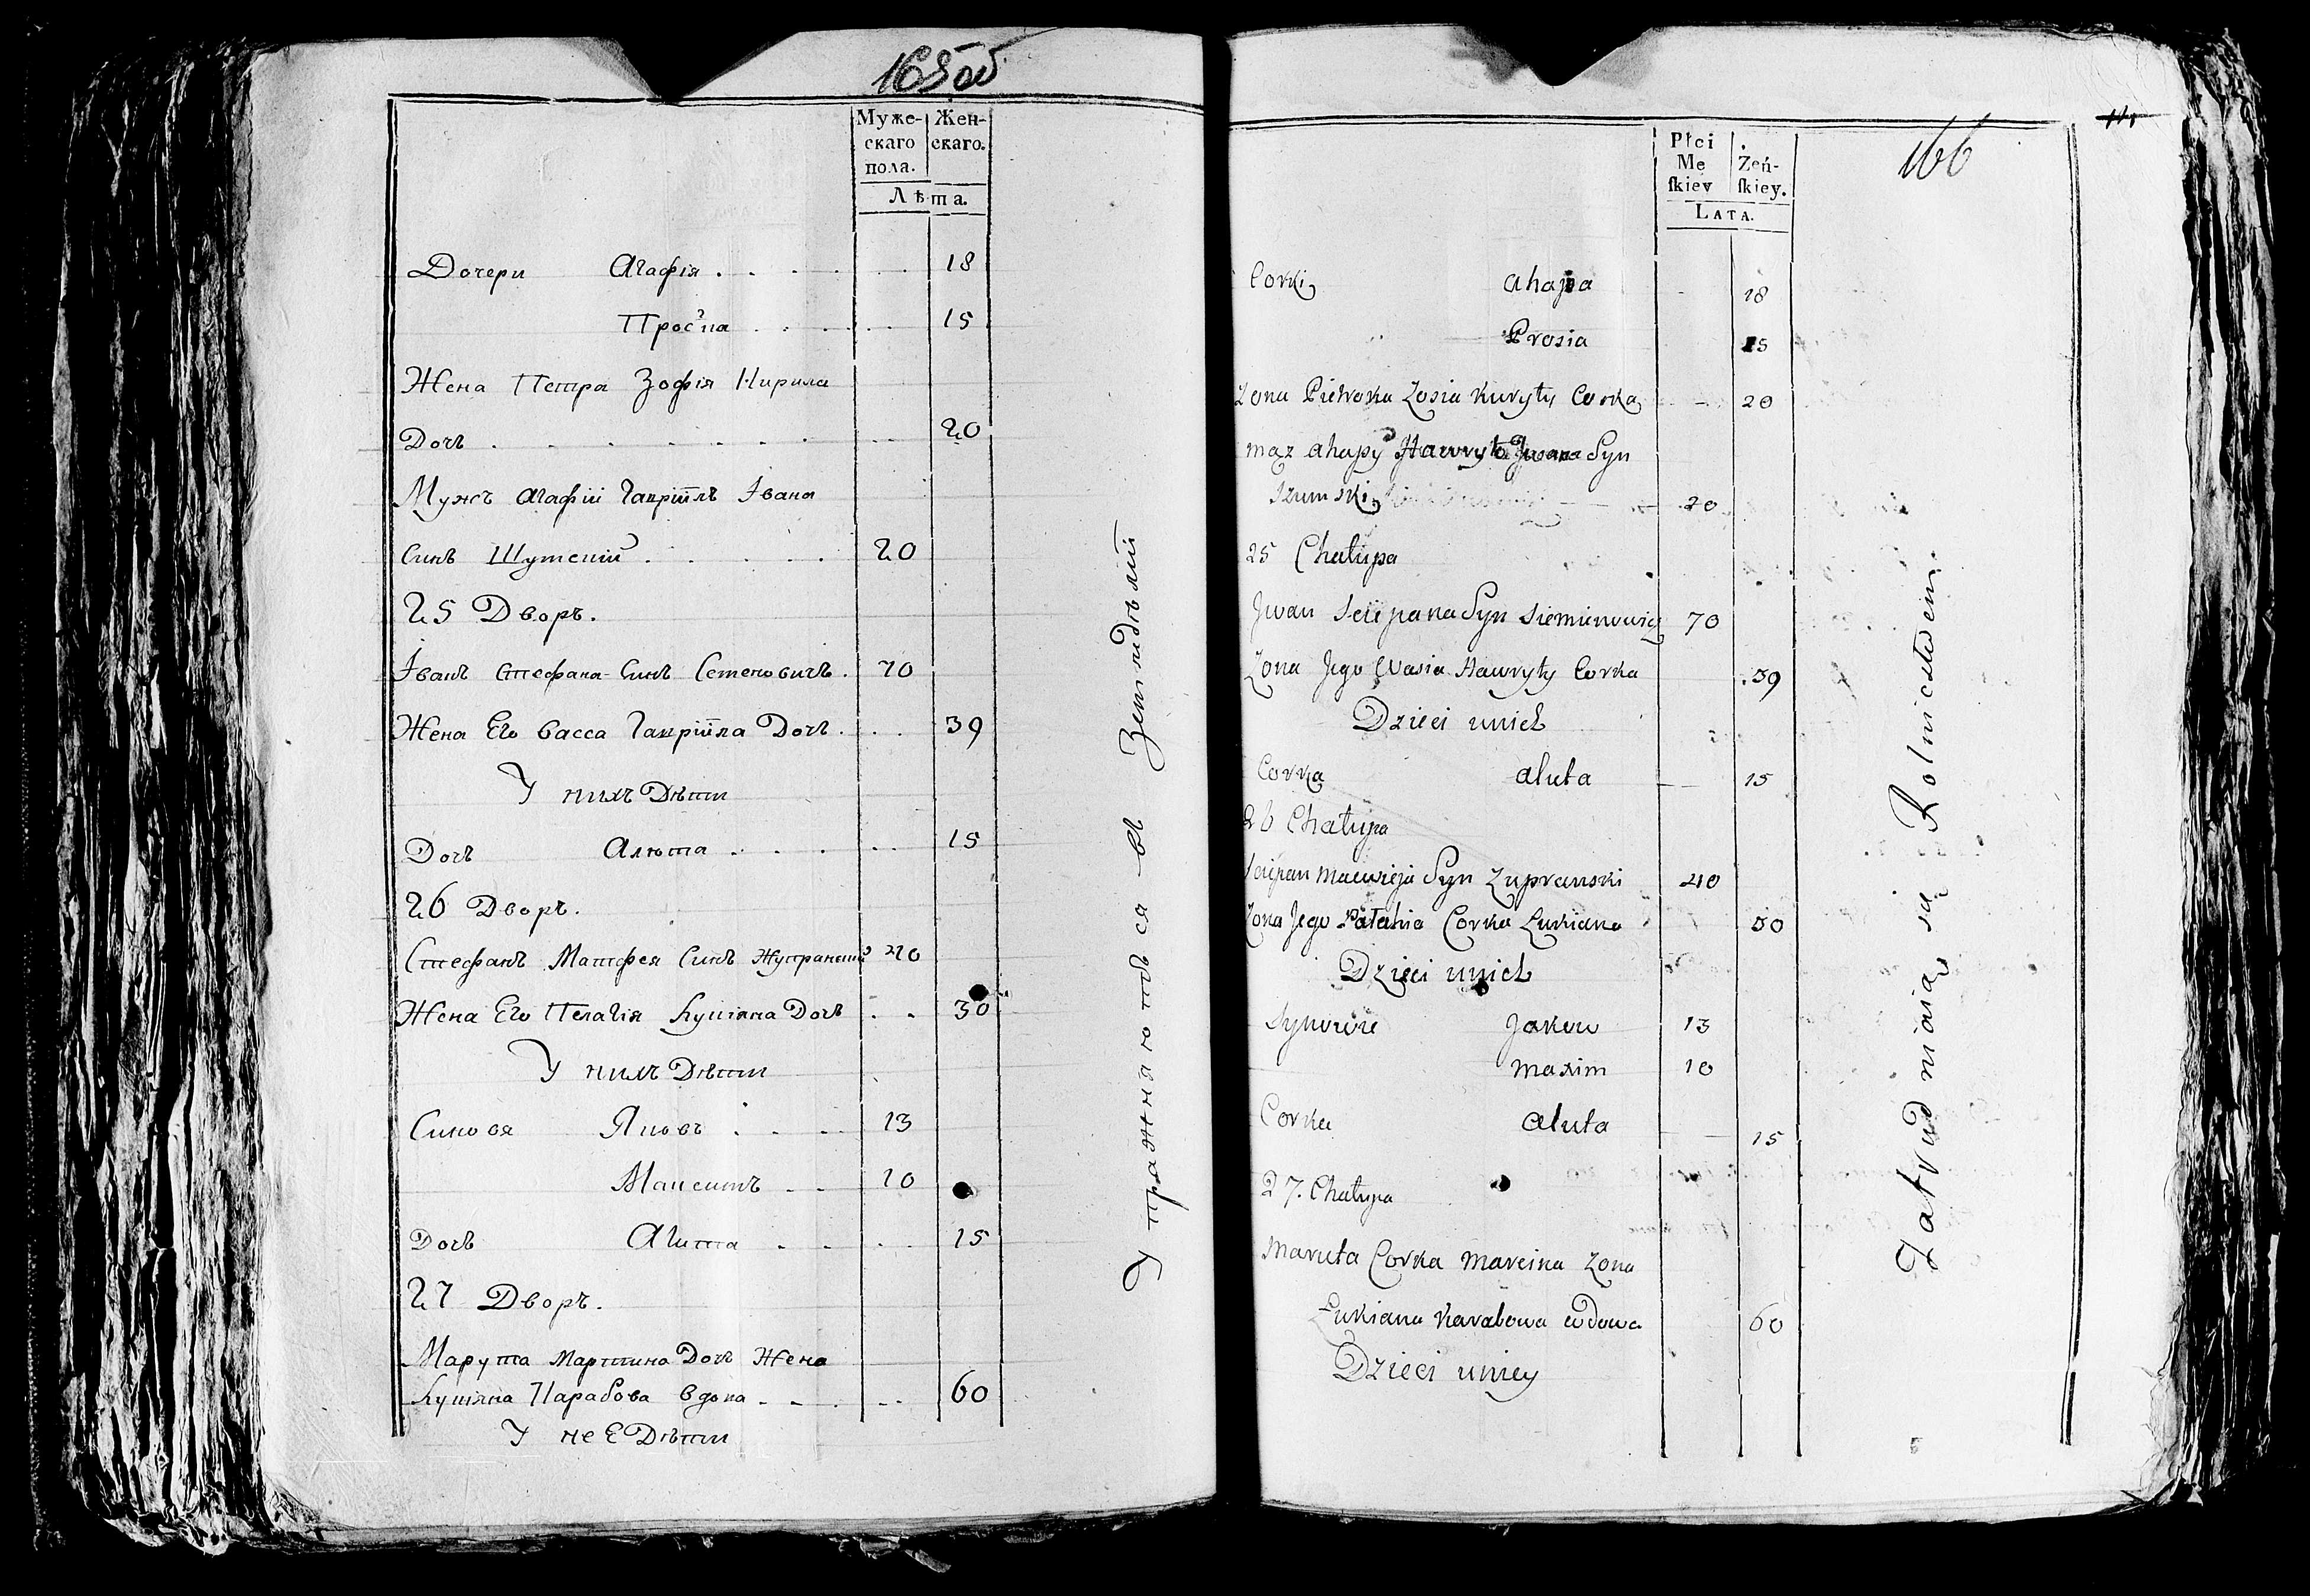 165об
Муже-
скаго
пола.
Жен-
скаго.
Лѣта.
Дочери Агафія 18
Прос'ꙗ 15
Жена Петра Зофія Кирила
Дочь 20
Мужъ Агафіи Гавріилъ Івана
Синъ Шумскій 20
25 Дворъ.
Іванъ Стефана Синъ Семеновичъ 70
Жена Его Васса Гавріила Дочь 39
У нихъ Дѣти
Дочь Алюта 15
26 Дворъ.
Стефанъ Матфея Синъ Жупранскій 40
Жена Его Пелагія Лукіяна Дочь 30
У нихъ Дѣти
Синовя Яковъ 13
Максимъ 10
Дочь 15
27 Дворъ.
Марута Мартина Дочь Жена
Лукіяна Карабова вдова 60
У нее Дѣти
Упражняются въ Земледѣліи
166
Płci
Mę
skiey
Żeń-
skiey.
LATA.
Corki Ahapa 18
Prosia 15
Zona Pietroka Zosia Kuryły Corka 20
mąz ahapy Hawryło Jwana Syn
Szumski 20
25 Chałupa
Jwan Sciepana Syn Siemienowicz 70
Zona Jego Wasia Hawryły Corka 39
Dzieci unich
Corka aluta 15
26 Chałupa
Sciepan Macwieja Syn Zupranski 40
Zona Jego Pałahia Corka Łukiana 30
Dzieci unich
Synowie Jakow 13
Maxim 10
Corka aluta 15
27. Chałupa
Maruta Corka Marcina Zona
Łukiana Karabowa wdowa 60
Dzieci uniey
Zatrudniaią się Rolnictwem.